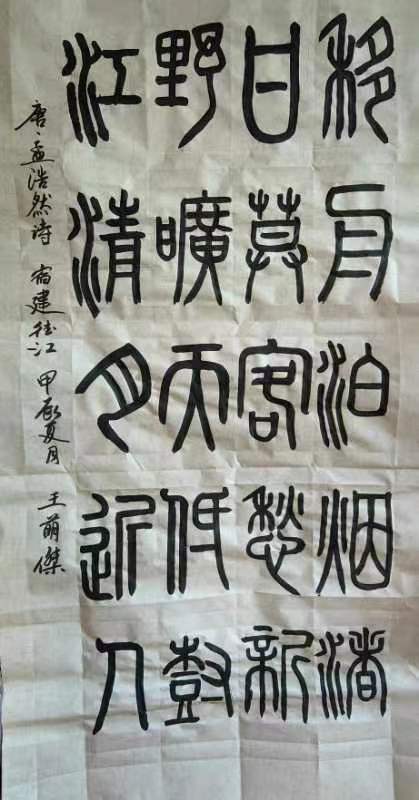 移舟泊烟渚
日莫客愁新
野曠天低尌
江清月近人
唐·孟浩然诗 宿建德江 甲辰夏月 王萌傑